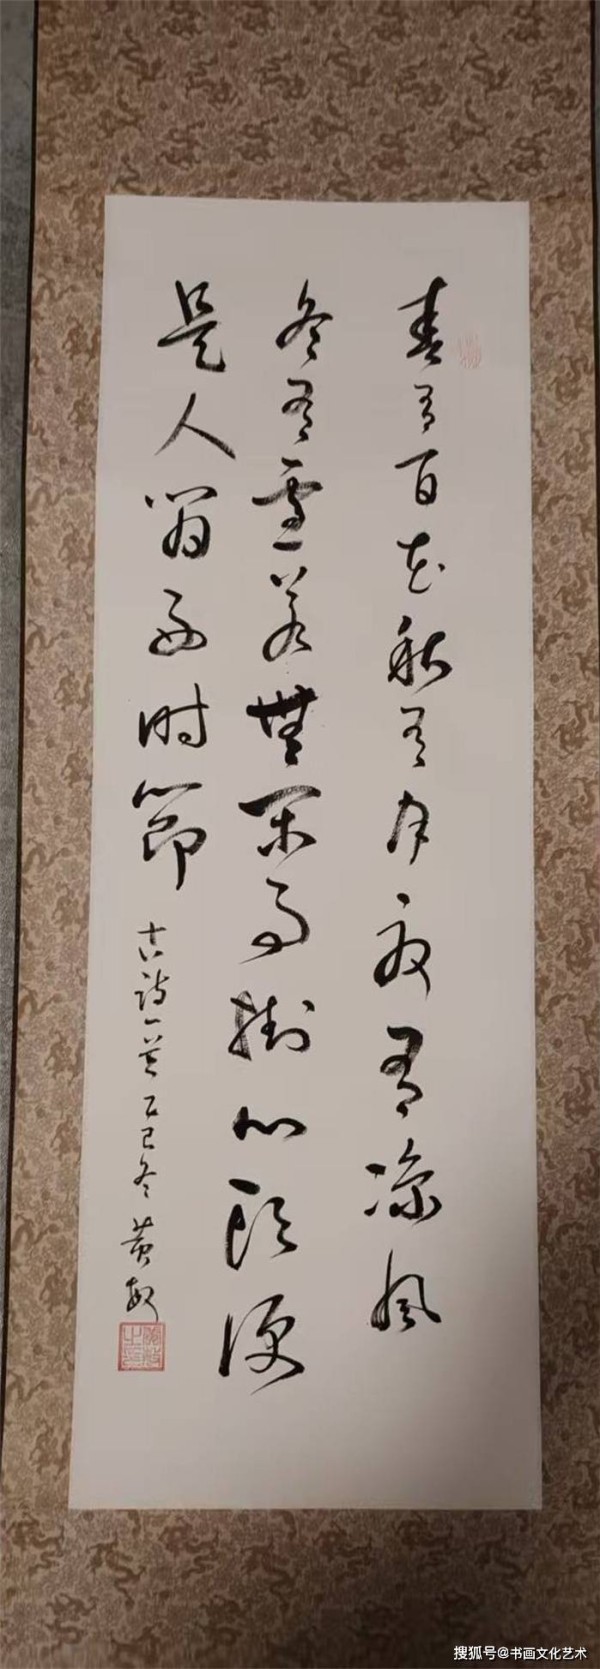 春有百花秋有月夏有凉風
冬有雪若無閑事掛心頭便
是人間好时節
古诗一首 乙巳冬 黄
搜狐号@书画文化艺术